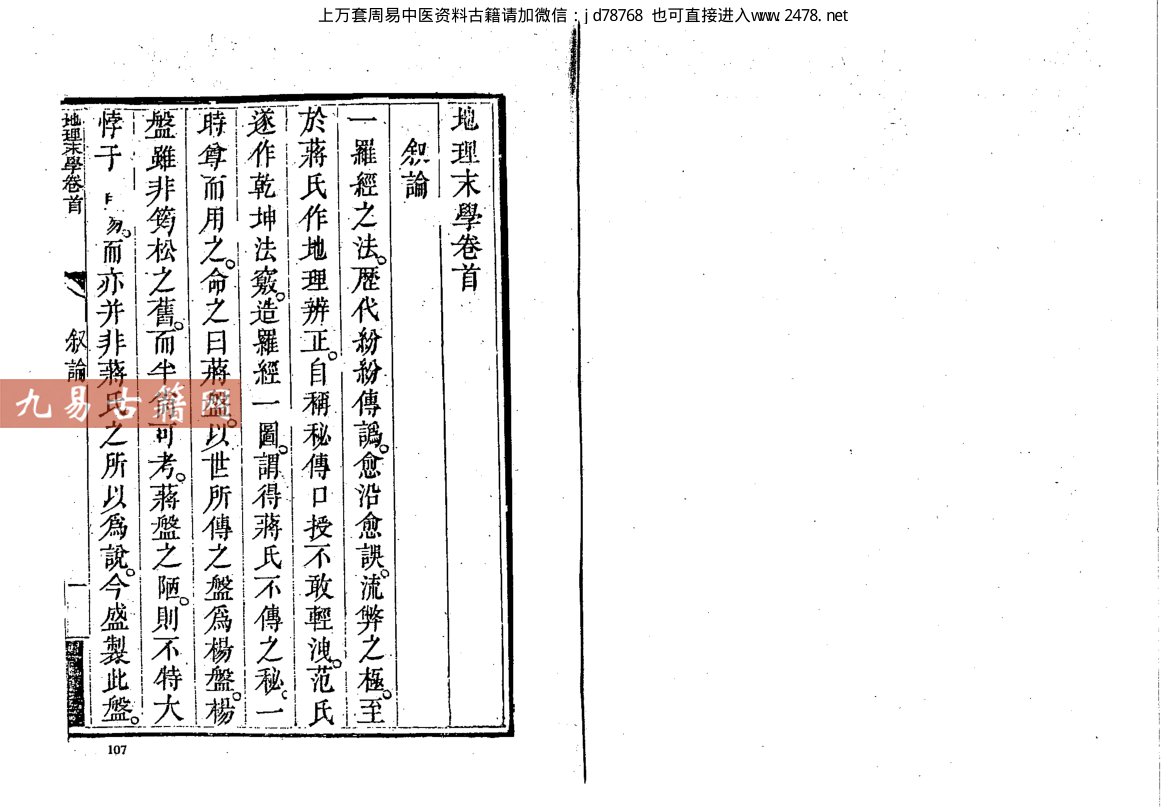 上万套周易中医资料古籍请加微信：jd78768 也可直接进入www.2478.net
地理末學卷首
叙論
一羅經之法。歷代紛紛傳譌。愈沿愈誤。流弊之極。至
於蔣氏作地理辨正。自稱秘傳口授不敢輕洩。范氏
遂作乾坤法竅。造羅經一圖。謂得蔣氏不傳之秘。一
時尊而用之。命之曰蔣盤。以世所傳之盤爲楊盤。楊
盤雖非筠松之舊。而半可考。蔣盤之陋。則不特大
悖于易。而亦并非蔣氏之所以爲說。今盛製此盤。
地理末學卷首
叙論
一
九易古籍网
107